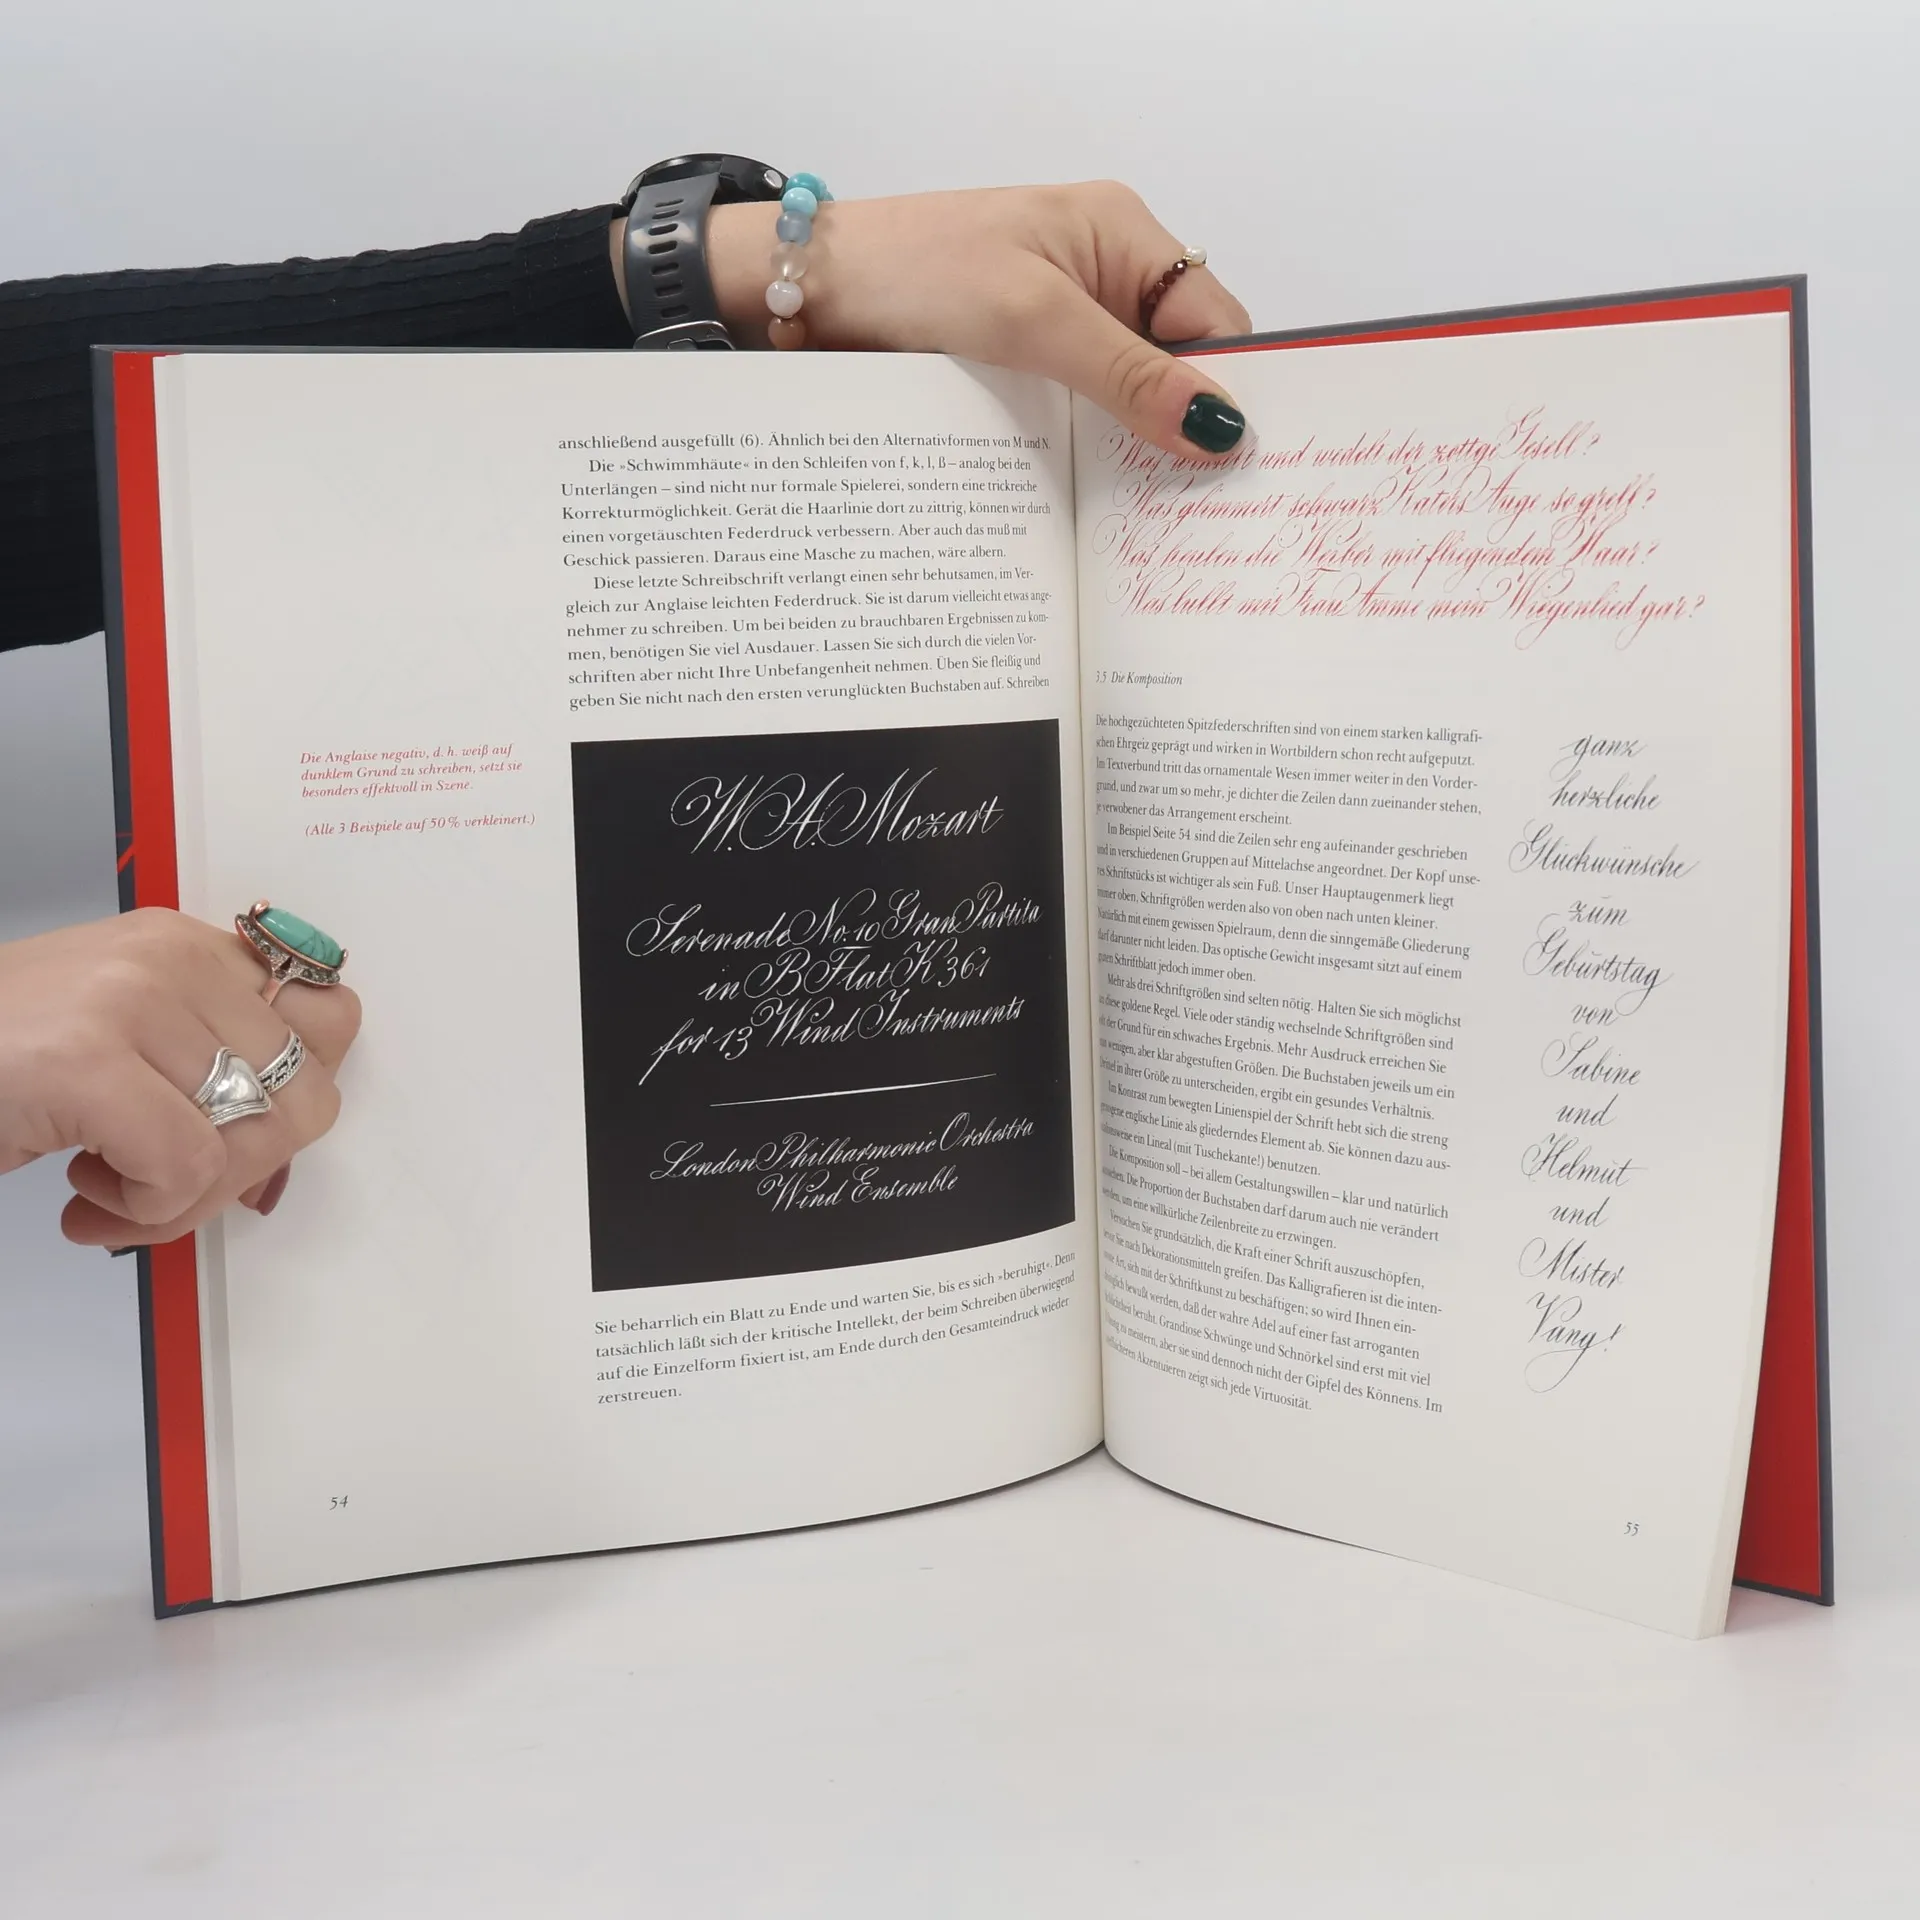 anschließend ausgefüllt (6). Ähnlich bei den Alternativformen von M und N.
Die »Schwimmhäute« in den Schleifen von f, k, l, ß – analog bei den
Unterlängen – sind nicht nur formale Spielerei, sondern eine trickreiche
Korrekturmöglichkeit. Gerät die Haarlinie dort zu zittrig, können wir durch
einen vorgetäuschten Federdruck verbessern. Aber auch das muß mit
Geschick passieren. Daraus eine Masche zu machen, wäre albern.
Diese letzte Schreibschrift verlangt einen sehr behutsamen, im Ver-
gleich zur Anglaise leichten Federdruck. Sie ist darum vielleicht etwas ange-
nehmer zu schreiben. Um bei beiden zu brauchbaren Ergebnissen zu kom-
men, benötigen Sie viel Ausdauer. Lassen Sie sich durch die vielen Vor-
schriften aber nicht Ihre Unbefangenheit nehmen. Üben Sie fleißig und
geben Sie nicht nach den ersten verunglückten Buchstaben auf. Schreiben
Die Anglaise negativ, d. h. weiß auf
dunklem Grund zu schreiben, setzt sie
besonders effektvoll in Szene.
(Alle 3 Beispiele auf 50% verkleinert.)
W. A. Mozart
Serenade No. 10 Gran Partita
in B Flat K 361
for 13 Wind Instruments
London Philharmonic Orchestra
Wind Ensemble
Sie beharrlich ein Blatt zu Ende und warten Sie, bis es sich »beruhigt«. Denn
tatsächlich läßt sich der kritische Intellekt, der beim Schreiben überwiegend
auf die Einzelform fixiert ist, am Ende durch den Gesamteindruck wieder
zerstreuen.
54
Was winselt und wedelt der zottge Gesell?
Was glimmert schwarz Katers Auge so grell?
Was heulen die Weiber mit fliegendem Haar?
Was lullt mir Frau Amme mein Wiegenlied gar?
3.5 Die Komposition
Die hochgezüchteten Spitzfederschriften sind von einem starken kalligrafi-
schen Ehrgeiz geprägt und wirken in Wortbildern schon recht aufgeputzt.
Im Textverbund tritt das ornamentale Wesen immer weiter in den Vorder-
grund, und zwar um so mehr, je dichter die Zeilen dann zueinander stehen,
je verwobener das Arrangement erscheint.
Im Beispiel Seite 54 sind die Zeilen sehr eng aufeinander geschrieben
und in verschiedenen Gruppen auf Mittelachse angeordnet. Der Kopf unse-
res Schriftstücks ist wichtiger als sein Fuß. Unser Hauptaugenmerk liegt
immer oben, Schriftgrößen werden also von oben nach unten kleiner.
Natürlich mit einem gewissen Spielraum, denn die sinngemäße Gliederung
darf darunter nicht leiden. Das optische Gewicht insgesamt sitzt auf einem
guten Schriftblatt jedoch immer oben.
Mehr als drei Schriftgrößen sind selten nötig. Halten Sie sich möglichst
an diese goldene Regel. Viele oder ständig wechselnde Schriftgrößen sind
oft der Grund für ein schwaches Ergebnis. Mehr Ausdruck erreichen Sie
mit wenigen, aber klar abgestuften Größen. Die Buchstaben jeweils um ein
Drittel in ihrer Größe zu unterscheiden, ergibt ein gesundes Verhältnis.
Im Kontrast zum bewegten Linienspiel der Schrift hebt sich die streng
gezogene englische Linie als gliederndes Element ab. Sie können dazu aus-
nahmsweise ein Lineal (mit Tuschekante!) benutzen.
Die Komposition soll – bei allem Gestaltungswillen – klar und natürlich
aussehen. Die Proportion der Buchstaben darf darum auch nie verändert
werden, um eine willkürliche Zeilenbreite zu erzwingen.
Versuchen Sie grundsätzlich, die Kraft einer Schrift auszuschöpfen,
bevor Sie nach Dekorationsmitteln greifen. Das Kalligrafieren ist die inten-
Art, sich mit der Schriftkunst zu beschäftigen; so wird Ihnen ein-
bewußt werden, daß der wahre Adel auf einer fast arroganten
Schlichtheit beruht. Grandiose Schwünge und Schnörkel sind erst mit viel
Übung zu meistern, aber sie sind dennoch nicht der Gipfel des Könnens. Im
Akzentuieren zeigt sich jede Virtuosität.
ganz
herzliche
Glückwünsche
zum
Geburtstag
von
Sabine
und
Helmut
und
Mister
Vang!
55